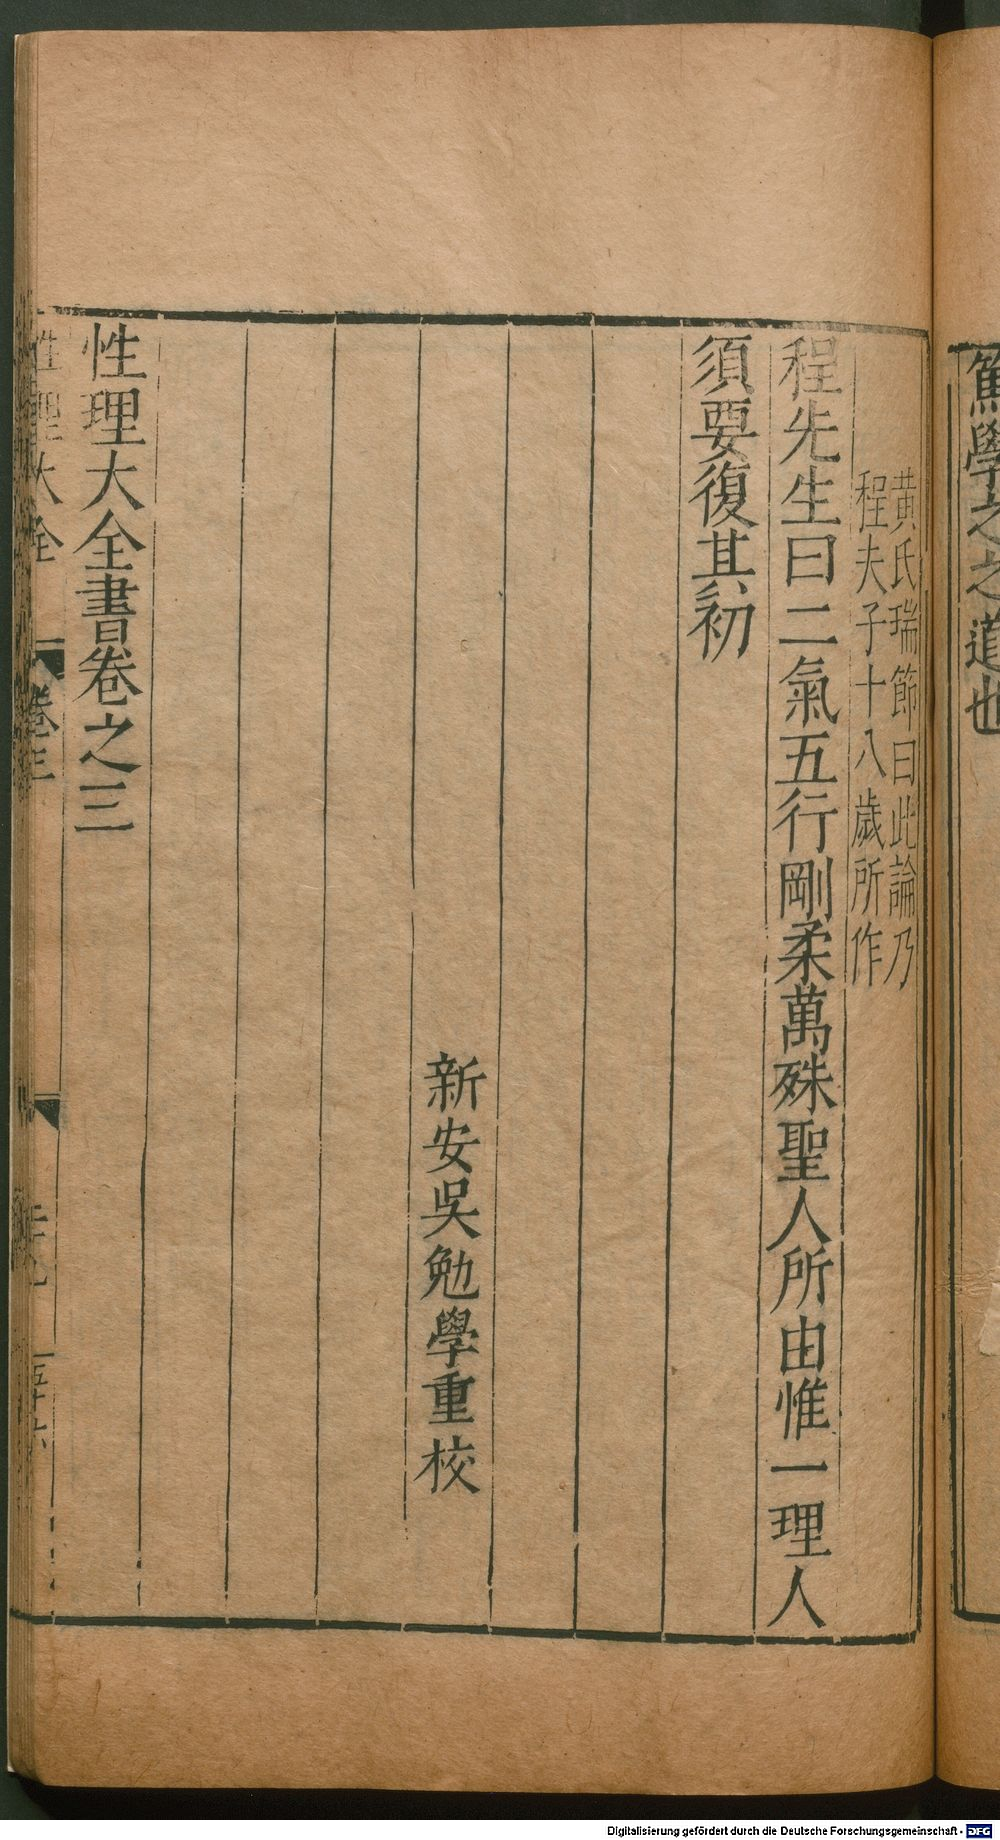 篤學之之道也
黃氏瑞節曰此論乃
程夫子十八歲所作
程先生曰二氣五行剛柔萬殊聖人所由惟一理人
須要復其初
新安吳勉學重校
性理大全書卷之三
性理大全 卷三 五十六
Digitalisierung gefördert durch die Deutsche Forschungsgemeinschaft - DFG